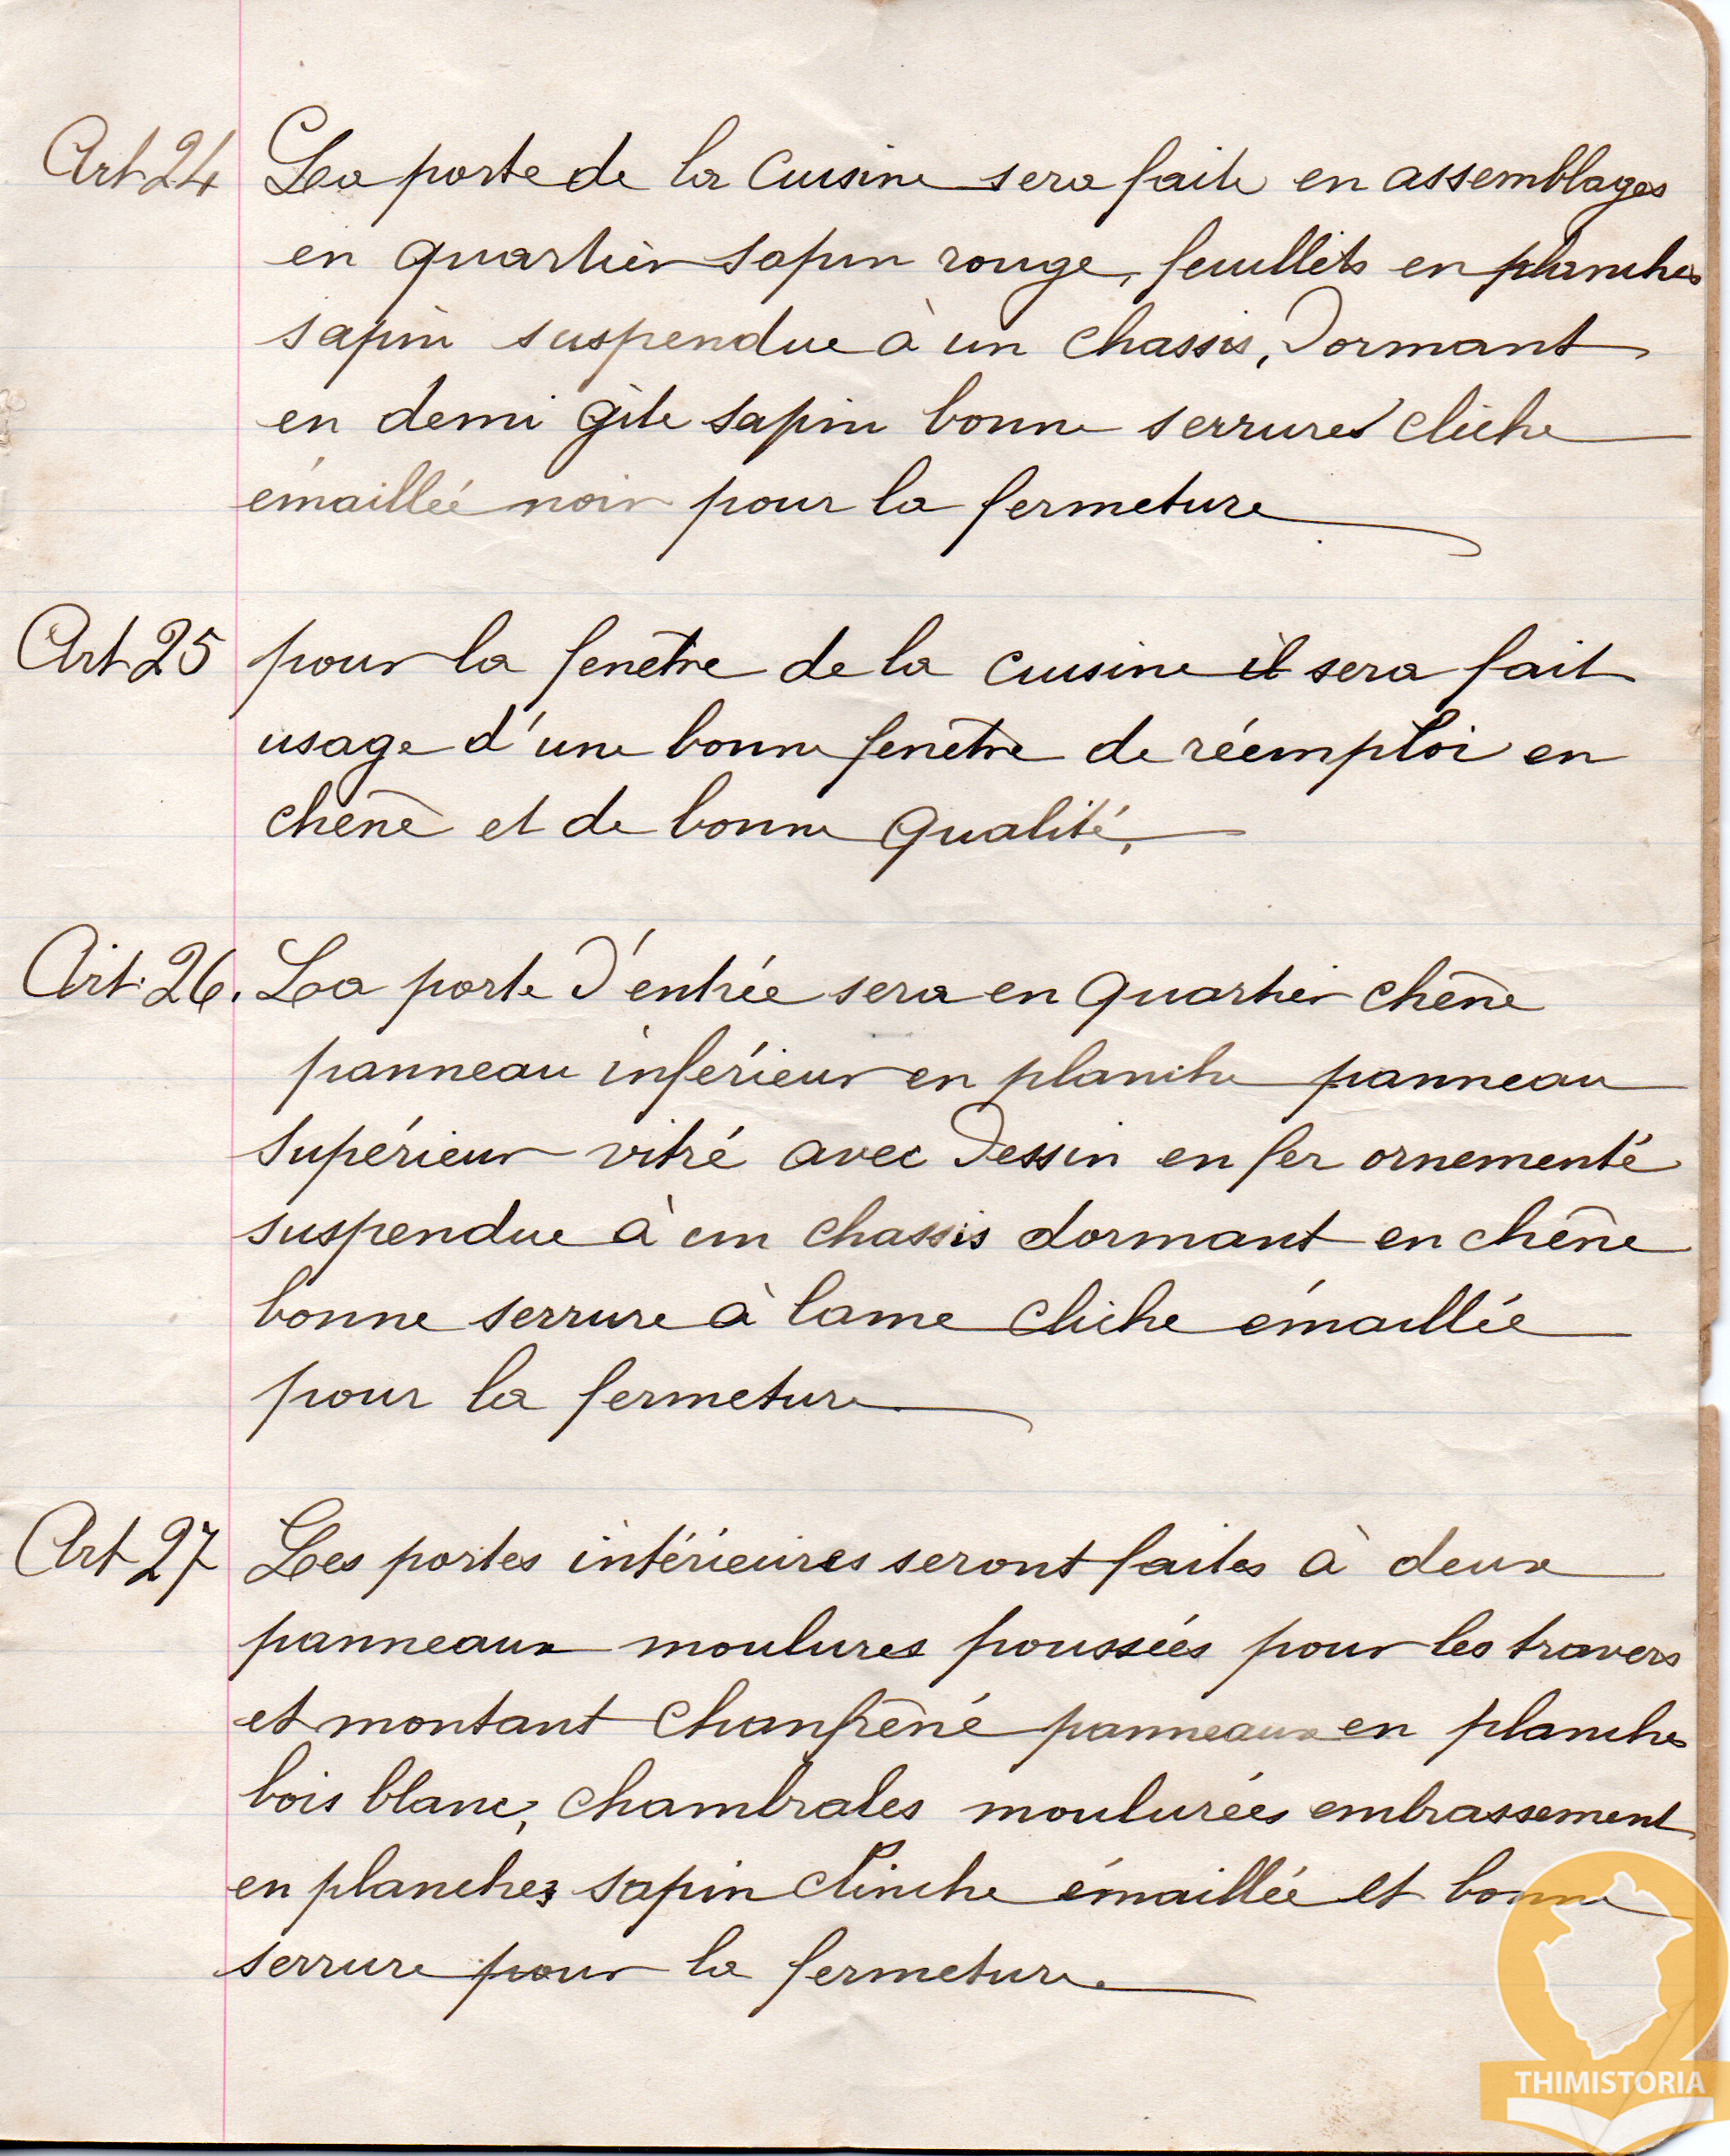 Art 24 La porte de la Cuisine sera faite en assemblages
en quartier sapin rouge, feuillets en planches
sapin suspendue à un chassis, Dormant
en demi gîte sapin bonne serrures cliche
émaillée noir pour la fermeture
Art 25 pour la fenêtre de la cuisine il sera fait
usage d'une bonne fenêtre de réemploi en
chêne et de bonne qualité,
Art. 26. La porte D'entrée sera en quartier chêne
panneau inférieur en planche panneau
supérieur vitré avec Dessin en fer ornementé
suspendue à un chassis dormant en chêne
bonne serrure à lame cliche émaillée
pour la fermeture
Art 27 Les portes intérieures seront faites à deux
panneaux moulures poussées pour les travers
et montant chanfrêné panneaux en planches
bois blanc, chambrales moulurées embrassement
en planches sapin clinche émaillée et bonne
serrure pour la fermeture.
THIMISTORIA